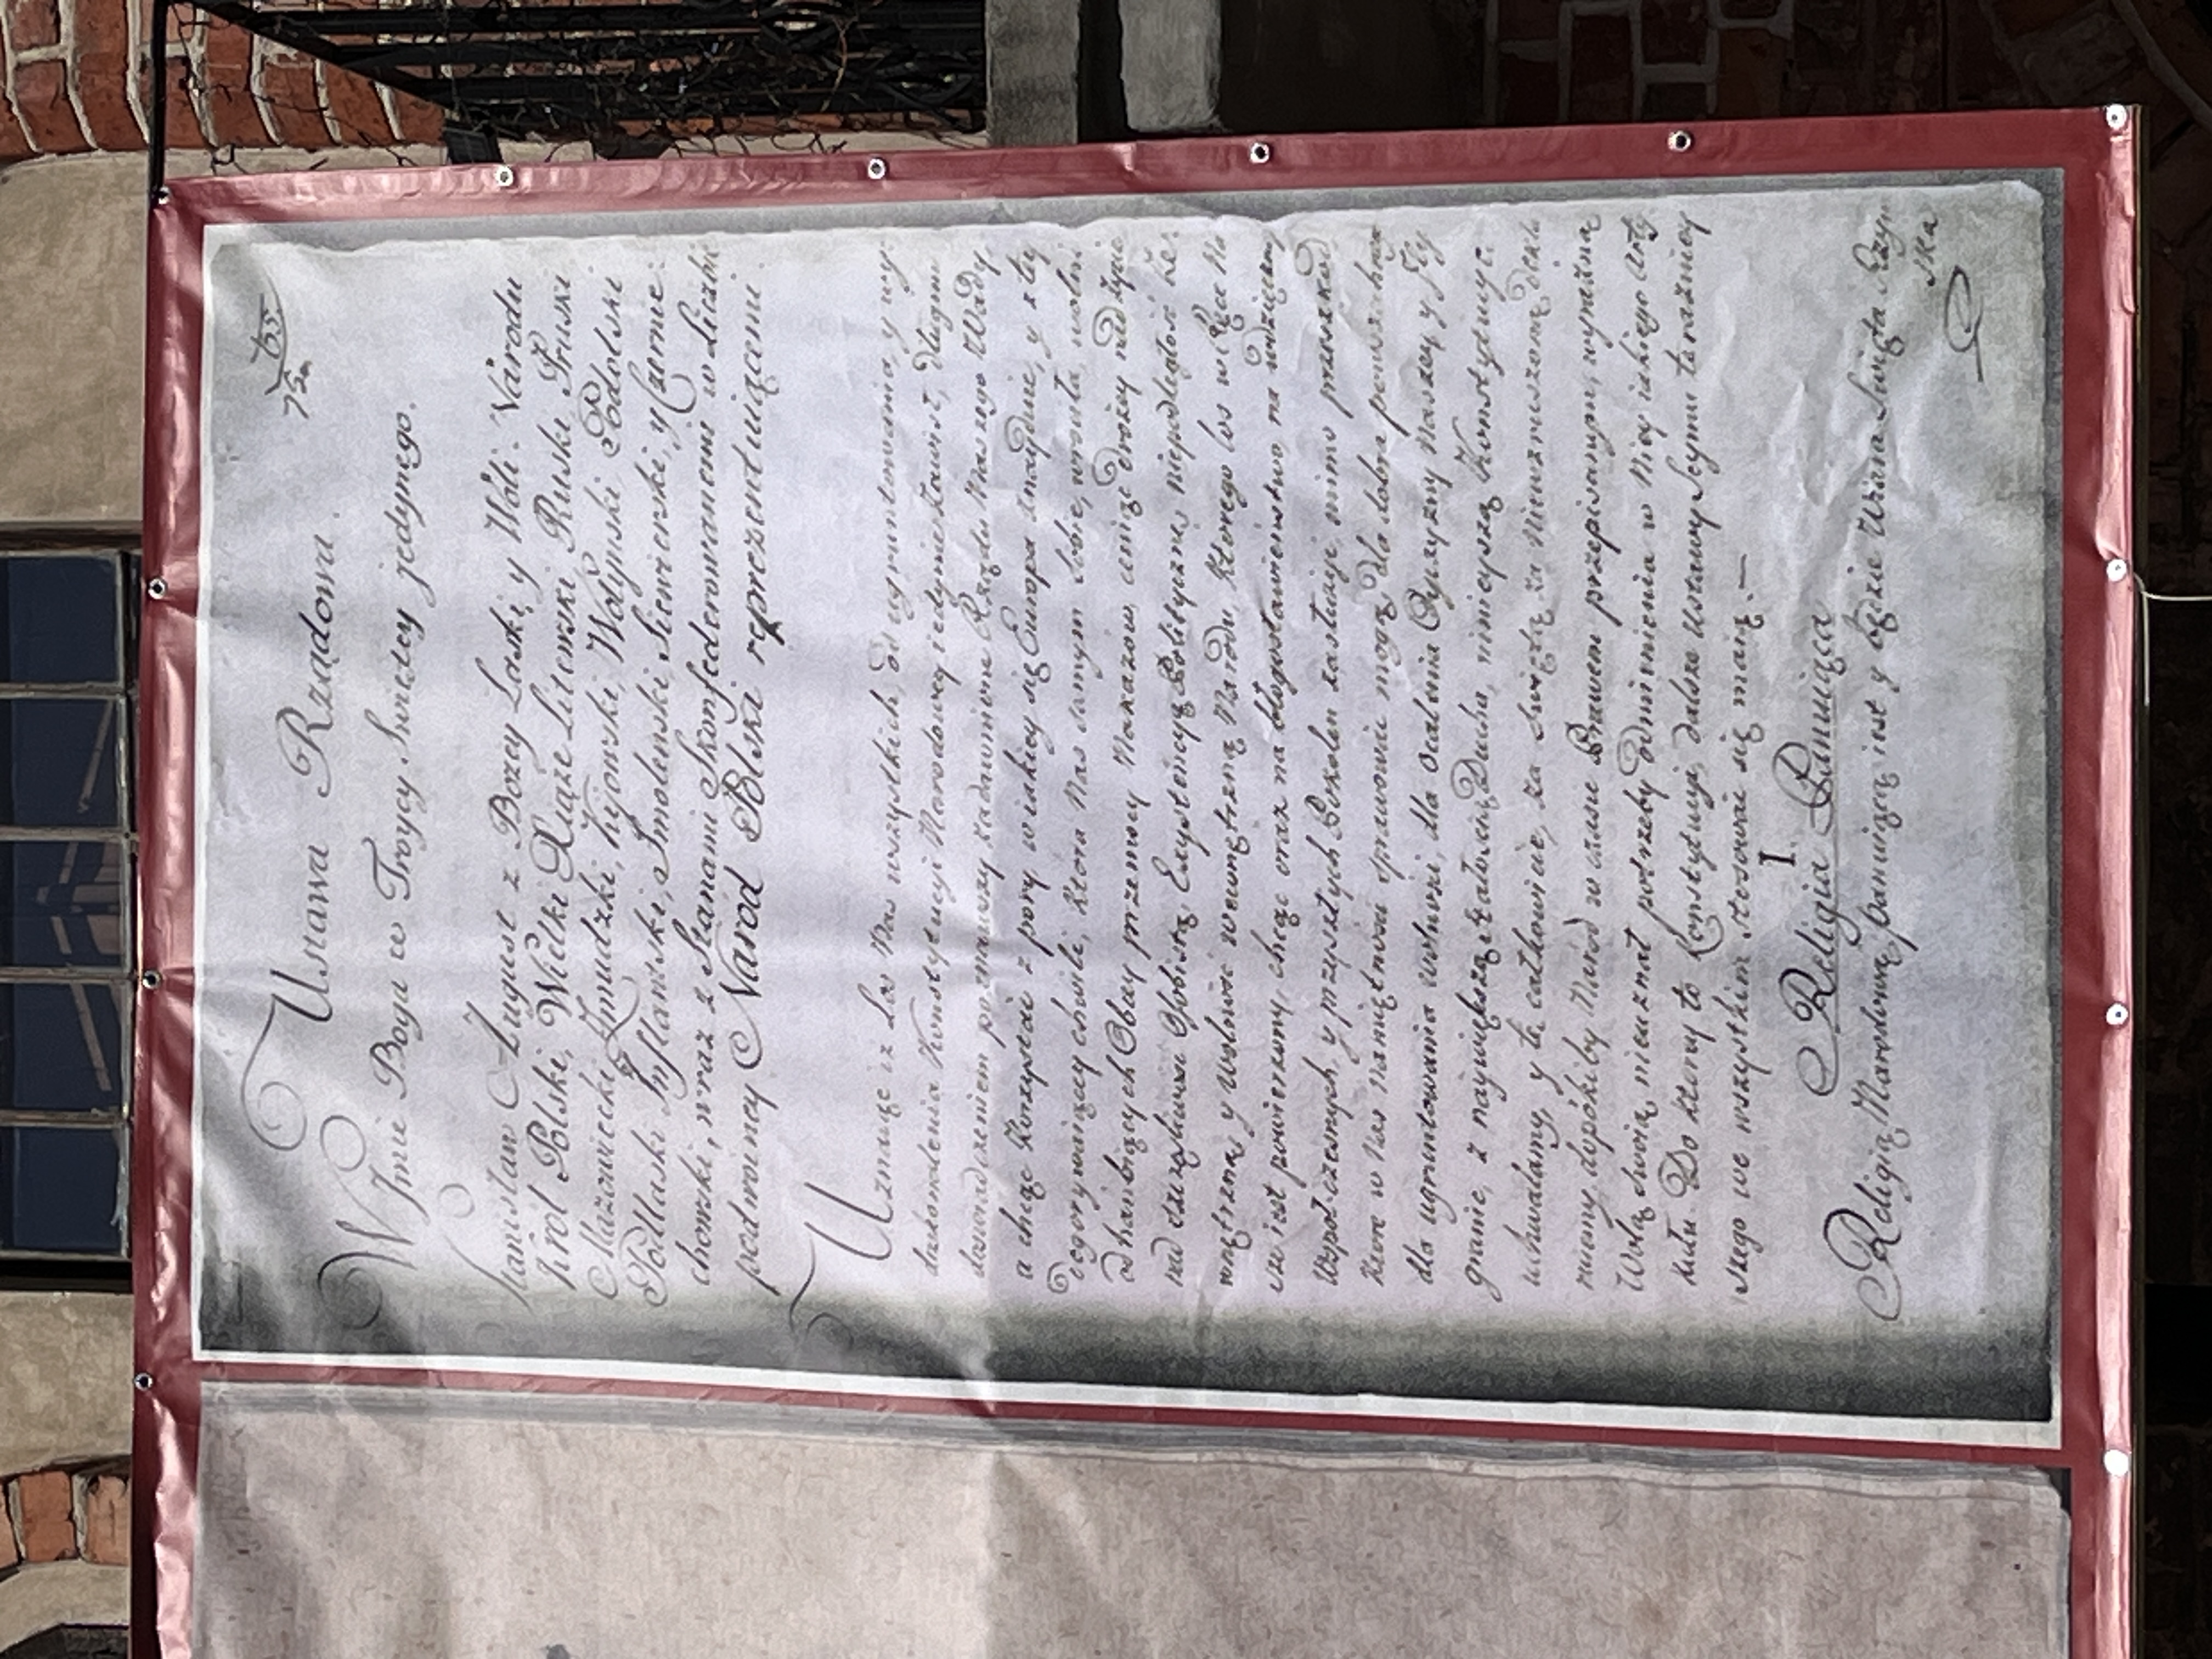 Ustawa Rządowa.
W Jmie Boga w Troycy Swiętey jedynego.
Stanisław August z Bozey Łaski, y Woli Narodu
Król Polski, Wielki Xiąze Litewski, Ruski, Pruski
Mazowiecki, Zmudzki, Kijowski, Wołynski, Podolski
Podlaski, Jnflantski, Smolenski, Siewierski, y Czernie-
chowski, wraz z Stanami Skonfederowanemi w Liczbie
podwoiney Naród Polski reprezentuiącemi.
Uznaiąc iz Los Nas wszystkich, od ugruntowania y wy-
doskonalenia Konstytucyi Narodowey iedynie zawisł, długim
doswiadczeniem poznawszy zadawnione Rządu Naszego Wady,
a chcąc korzystać z pory w iakiey się Europa znayduie, y z tey
dogorywaiącey chwili, ktora Nas samym sobie, wrociła, wolni
od hanbiących Obcey przemocy Nakazow, ceniąc drożey nad życie
nad szczęśliwość Osobistą, Exystencyą Polityczną, niepodległość ze-
wnętrzną y wolność wewnętrzną Narodu, ktorego los w Ręce Na-
sze iest powierzony, chcąc oraz na błogosławieństwo, na wdzięczność
Wspoł-czesnych, y przyszłych Pokoleń zasłużyć, mimo przeszkod
ktore w Nas namiętności sprawować mogą, dla dobra powszechnego
dla ugruntowania wolności, dla ocalenia Oyczyzny Naszey, y Jey
granic, z naywiększą stałością Ducha, ninieyszą Konstytucyę
uchwalamy, y tę całkowicie, za świętą, za niewzruszoną dekla-
ruiemy, dopókiby Naród w czasie Prawem przepisanym, wyraźną
Wolą swoią, nieuznał potrzeby odmienienia w Niey iakiego Arty-
kułu. Do ktorey to Konstytucyi, dalsze ustawy Seymu teraźniey-
szego we wszystkim stosować się maią.—
I.
Religia Panuiąca
Religią Narodową panuiącą iest y będzie Wiara Swięta Rzym-
ska